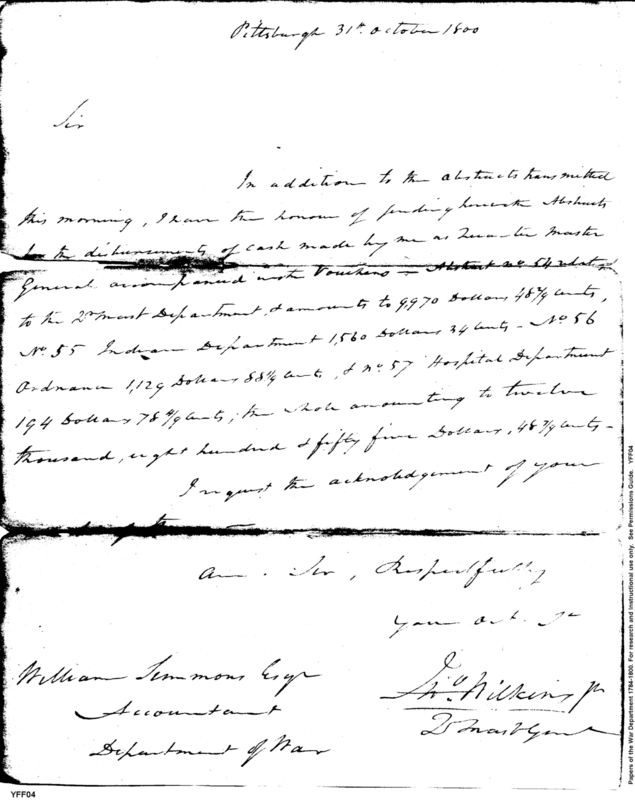 Pittsburgh 31st October 1800
Sir
In addition to the abstracts transmitted
this morning, I have the honour of sending herewith Abstracts
for the disbursements of cash made by me as Quarter Master
General accompanied with Vouchers – Abstract No. 54 relates
to the Qr Mast Department, & amounts to 9970 Dollars 48 Cents,
No. 55 Indian Department 1,560 Dollars 34 Cents – No. 56
Ordnance 1,129 Dollars 88 Cents, & No. 57 Hospital Department
194 Dollars 78 Cents; the whole amounting to twelve
thousand, eight hundred & fifty five Dollars, 48 Cents –
I request the acknowledgement of your
Am. Sir, Respectfully
Your Obt. St
Jno Wilkins Jr
Qr Mast Genl
William Simmons Esqr
Accountant
Department of War
YFF04
Papers of the War Department 1784-1800. For research and instructional use only. See Permissions Guide. YFF04